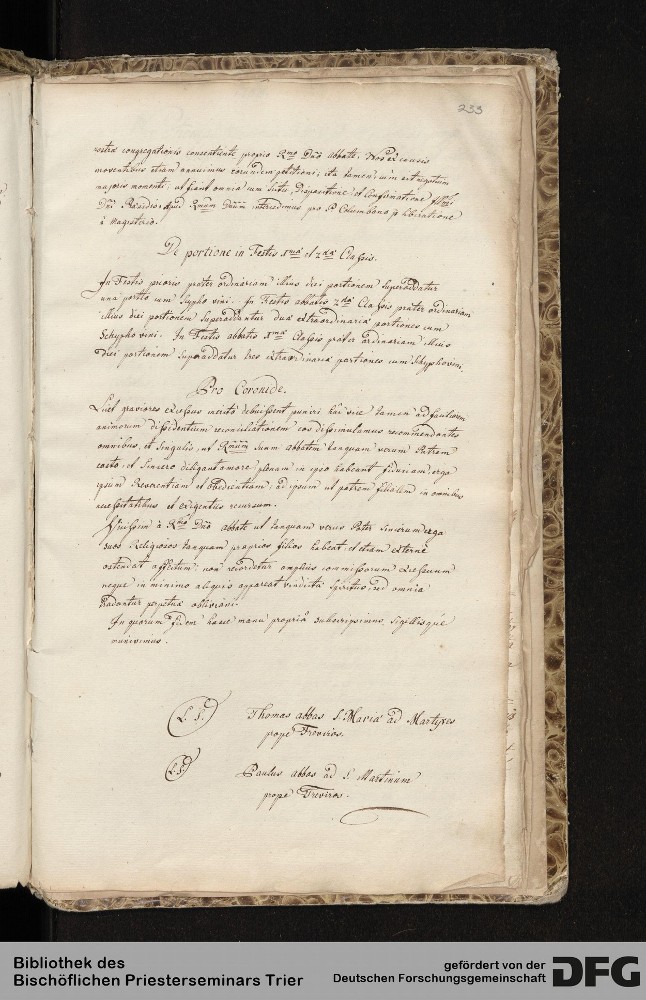 233
nostra congregationis consentiente proprio Rmo Dno abbate. Nos ex causis
moventibus etiam annuimus eorundem petitioni; ita tamen, cum est negotium
majoris momenti, ut fiant omnia cum situ, Dispositione et Confirmatione
Dni Præsidis apud Rmum Dnum intercedimus pro P. Columbano pro liberatione
à Magisterio.
De portione in Festis 1mæ et 2dæ Classis.
In Festis prioris præter ordinariam illius diei portionem superaddatur
una portio cum sypho vini. In Festis abbatis 2dæ Classis præter ordinariam
illius diei portionem superaddantur duæ extraordinariæ portiones cum
Schypho vini. In Festis abbatis 1mæ Classis præter ordinariam illius
Diei portionem superaddatur tres extraordinariæ portiones cum Schypho vini.
Pro Coronide.
Licet graviores excessus meritò debuissent puniri hâc vice tamen ad faciliorem
animorum dissidentium reconciliationem eos dissimulamus recommendantes
omnibus, et singulis, ut Rmum suum abbatem tanquam verum Patrem
casto, et sincero diligant amore, plenam in ipso habeant fiduciam, erga
ipsum Reverentiam et obedientiam, ad ipsum ut patrem filialem in omnibus
necessitatibus et exigentiis recursum.
Vicissim à Rmo Dno abbate ut tanquam verus Pater sincerum erga
suos Religiosos tanquam proprios filios habeat, et etiam externè
ostendat affectum; non recordetur amplius commissorum excessuum
neque in minimo aliquis appareat vindictæ spiritus, sed omnia
tradantur perpetuæ oblivioni.
In quorum fidem hasce manu propriâ subscripsimus, sigillisque
munivimus.
L. S. Thomas abbas S. Mariæ ad Martyres
propè Treviros.
L. S. Paulus abbas ad S. Martinum
propè Treviros.
Bibliothek des
Bischöflichen Priesterseminars Trier
gefördert von der
Deutschen Forschungsgemeinschaft
DFG